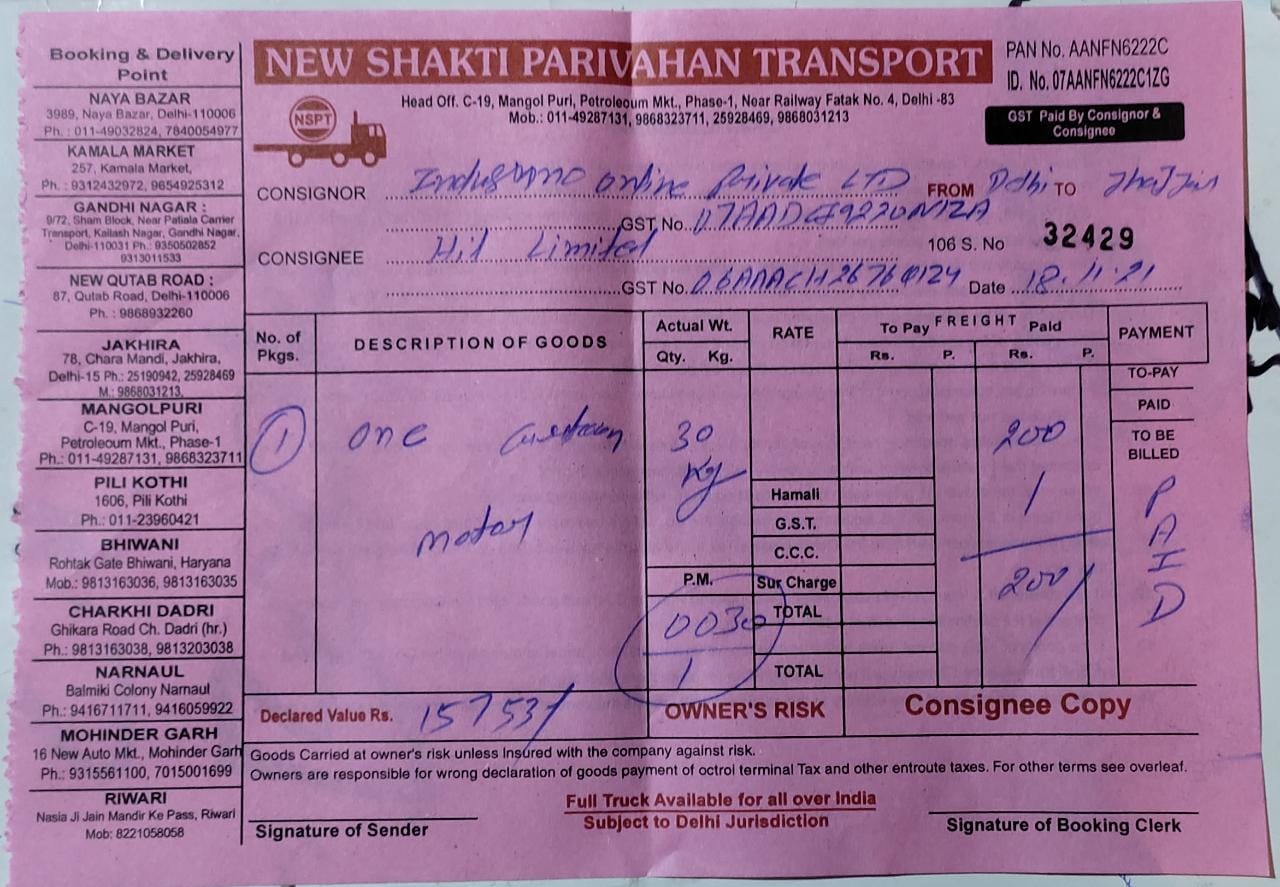 Booking & Delivery
Point
NAYA BAZAR
3989, Naya Bazar, Delhi-110006
Ph. : 011-49032824, 7840054977
KAMALA MARKET
257, Kamala Market,
Ph. : 9312432972, 9654925312
GANDHI NAGAR :
9/72, Sham Block, Near Patiala Carrier
Transport, Kailash Nagar, Gandhi Nagar,
Delhi-110031 Ph.: 9350502852
9313011533
NEW QUTAB ROAD :
87, Qutab Road, Delhi-110006
Ph. : 9868932260
JAKHIRA
78, Chara Mandi, Jakhira,
Delhi-15 Ph.: 25190942, 25928469
M.: 9868031213,
MANGOLPURI
C-19, Mangol Puri,
Petroleum Mkt., Phase-1
Ph.: 011-49287131, 9868323711
PILI KOTHI
1606, Pili Kothi
Ph.: 011-23960421
BHIWANI
Rohtak Gate Bhiwani, Haryana
Mob.: 9813163036, 9813163035
CHARKHI DADRI
Ghikara Road Ch. Dadri (hr.)
Ph.: 9813163038, 9813203038
NARNAUL
Balmiki Colony Narnaul
Ph.: 9416711711, 9416059922
MOHINDER GARH
16 New Auto Mkt., Mohinder Garh
Ph.: 9315561100, 7015001699
RIWARI
Nasia Ji Jain Mandir Ke Pass, Riwari
Mob: 8221058058
NEW SHAKTI PARIVAHAN TRANSPORT
PAN No. AANFN6222C
ID. No. 07AANFN6222C1ZG
Head Off. C-19, Mangol Puri, Petroleum Mkt., Phase-1, Near Railway Fatak No. 4, Delhi -83
Mob.: 011-49287131, 9868323711, 25928469, 9868031213
GST Paid By Consignor &
Consignee
NSPT
CONSIGNOR Online Private LTD FROM Delhi TO
GST No.
CONSIGNEE Hil Limited 106 S. No 32429
GST No. Date 18.11.21
No. of
Pkgs.
DESCRIPTION OF GOODS
Actual Wt.
Qty. Kg.
RATE
FREIGHT
To Pay Paid
Rs. P. Rs. P.
PAYMENT
TO-PAY
PAID
TO BE
BILLED
1 one 30 200
Kg
Hamali
G.S.T.
C.C.C.
P.M.
Sur Charge 200/
0030 TOTAL
1 TOTAL
PAID
Declared Value Rs. 15753/
OWNER'S RISK
Consignee Copy
Goods Carried at owner's risk unless Insured with the company against risk.
Owners are responsible for wrong declaration of goods payment of octroi terminal Tax and other entroute taxes. For other terms see overleaf.
Full Truck Available for all over India
Subject to Delhi Jurisdiction
Signature of Sender
Signature of Booking Clerk